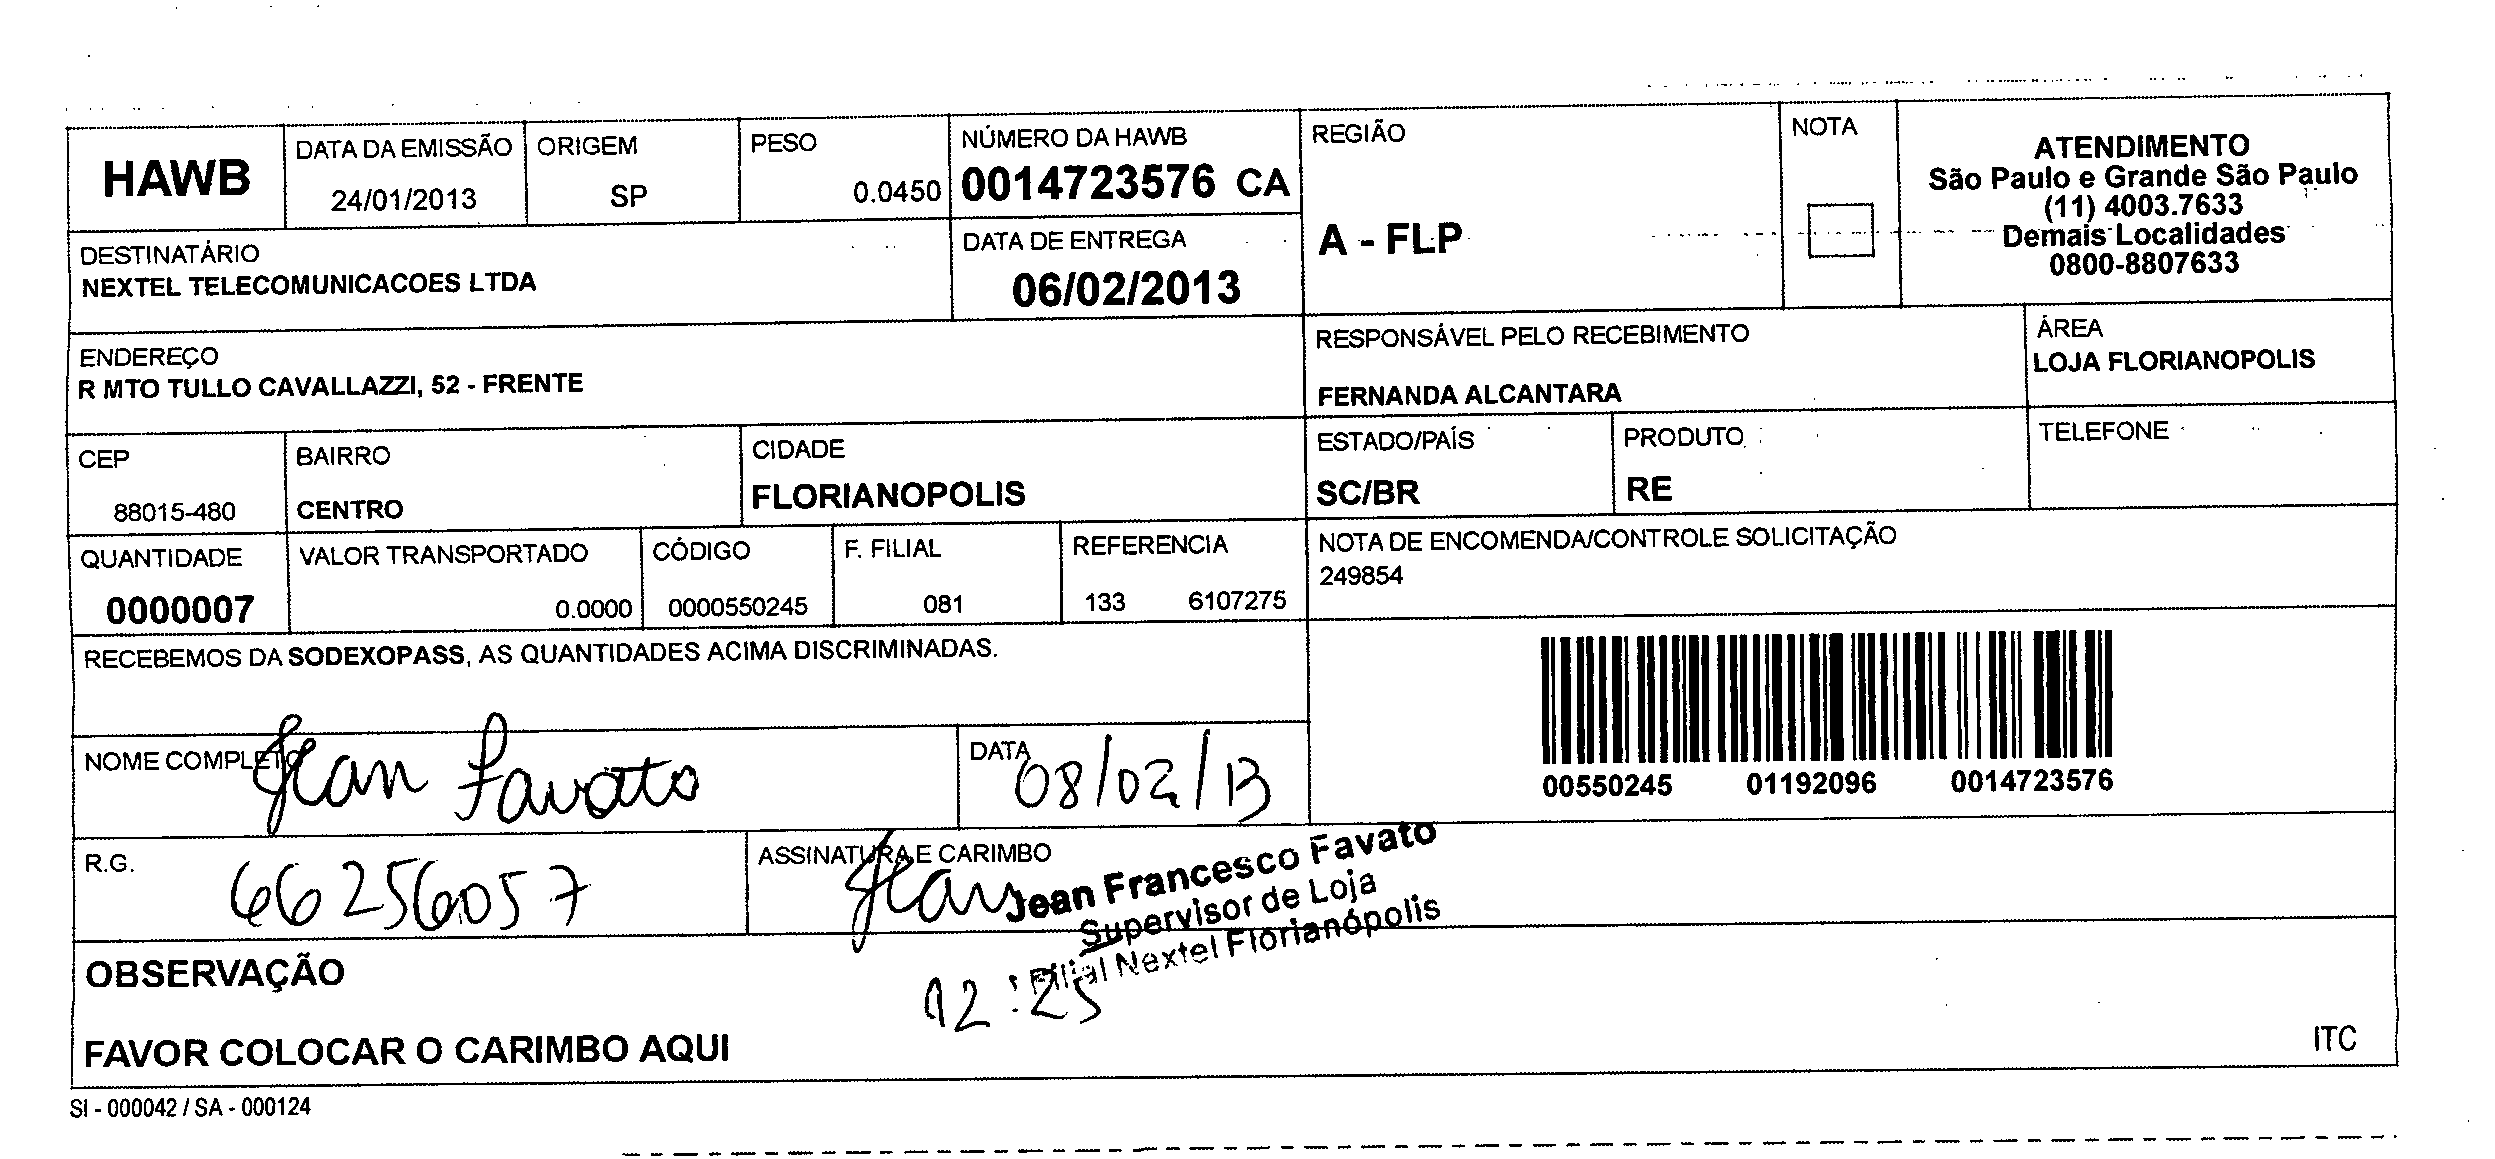 HAWB
DATA DA EMISSÃO
24/01/2013
ORIGEM
SP
PESO
0.0450
NÚMERO DA HAWB
0014723576 CA
REGIÃO
A - FLP
NOTA
ATENDIMENTO
São Paulo e Grande São Paulo
(11) 4003.7633
Demais Localidades
0800-8807633
DESTINATÁRIO
NEXTEL TELECOMUNICACOES LTDA
DATA DE ENTREGA
06/02/2013
ENDEREÇO
R MTO TULLO CAVALLAZZI, 52 - FRENTE
RESPONSÁVEL PELO RECEBIMENTO
FERNANDA ALCANTARA
ÁREA
LOJA FLORIANOPOLIS
CEP
88015-480
BAIRRO
CENTRO
CIDADE
FLORIANOPOLIS
ESTADO/PAÍS
SC/BR
PRODUTO
RE
TELEFONE
QUANTIDADE
0000007
VALOR TRANSPORTADO
0.0000
CÓDIGO
0000550245
F. FILIAL
081
REFERENCIA
133 6107275
NOTA DE ENCOMENDA/CONTROLE SOLICITAÇÃO
249854
RECEBEMOS DA SODEXOPASS, AS QUANTIDADES ACIMA DISCRIMINADAS.
00550245 01192096 0014723576
NOME COMPLETO
Jean Favato
DATA
08/02/13
R.G.
66256057
ASSINATURA E CARIMBO
Jean
Jean Francesco Favato
Supervisor de Loja
Filial Nextel Florianópolis
12:25
OBSERVAÇÃO
FAVOR COLOCAR O CARIMBO AQUI
ITC
SI - 000042 / SA - 000124